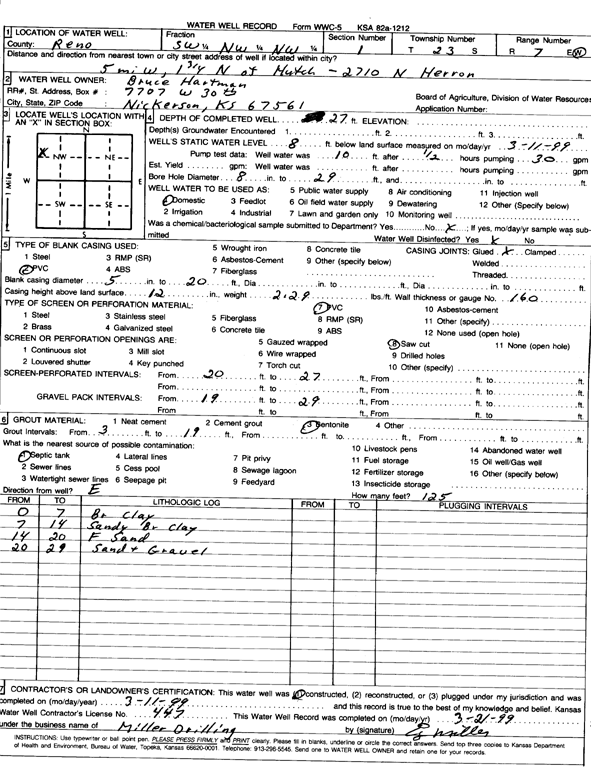 WATER WELL RECORD Form WWC-5 KSA 82a-1212
1 LOCATION OF WATER WELL: Fraction Section Number Township Number Range Number
County: Reno SW ¼ NW ¼ NW ¼ 1 T 23 S R 7 E(W)
Distance and direction from nearest town or city street address of well if located within city?
5 mi W, 1 3/4 N of Hutch - 2710 N Herron
2 WATER WELL OWNER: Bruce Hartman
RR#, St. Address, Box # : 7707 W 30th Board of Agriculture, Division of Water Resources
City, State, ZIP Code : Nickerson, KS 67561 Application Number:
3 LOCATE WELL'S LOCATION WITH AN "X" IN SECTION BOX:
N
X NW NE
W E
SW SE
S
1 Mile
4 DEPTH OF COMPLETED WELL 27 ft. ELEVATION:
Depth(s) Groundwater Encountered 1. ft. 2. ft. 3. ft.
WELL'S STATIC WATER LEVEL 8 ft. below land surface measured on mo/day/yr 3-11-99
Pump test data: Well water was 10 ft. after 1/2 hours pumping 30 gpm
Est. Yield gpm: Well water was ft. after hours pumping gpm
Bore Hole Diameter 8 in. to 29 ft., and in. to ft.
WELL WATER TO BE USED AS: 5 Public water supply 8 Air conditioning 11 Injection well
1 Domestic 3 Feedlot 6 Oil field water supply 9 Dewatering 12 Other (Specify below)
2 Irrigation 4 Industrial 7 Lawn and garden only 10 Monitoring well
Was a chemical/bacteriological sample submitted to Department? Yes No X; If yes, mo/day/yr sample was submitted Water Well Disinfected? Yes X No
5 TYPE OF BLANK CASING USED: 5 Wrought iron 8 Concrete tile CASING JOINTS: Glued X Clamped
1 Steel 3 RMP (SR) 6 Asbestos-Cement 9 Other (specify below) Welded
2 PVC 4 ABS 7 Fiberglass Threaded
Blank casing diameter 5 in. to 20 ft., Dia in. to ft., Dia in. to ft.
Casing height above land surface 12 in., weight 2.29 lbs./ft. Wall thickness or gauge No. 160
TYPE OF SCREEN OR PERFORATION MATERIAL: 7 PVC 10 Asbestos-cement
1 Steel 3 Stainless steel 5 Fiberglass 8 RMP (SR) 11 Other (specify)
2 Brass 4 Galvanized steel 6 Concrete tile 9 ABS 12 None used (open hole)
SCREEN OR PERFORATION OPENINGS ARE: 5 Gauzed wrapped 8 Saw cut 11 None (open hole)
1 Continuous slot 3 Mill slot 6 Wire wrapped 9 Drilled holes
2 Louvered shutter 4 Key punched 7 Torch cut 10 Other (specify)
SCREEN-PERFORATED INTERVALS: From 20 ft. to 27 ft., From ft. to ft.
From ft. to ft., From ft. to ft.
GRAVEL PACK INTERVALS: From 19 ft. to 29 ft., From ft. to ft.
From ft. to ft., From ft. to ft.
6 GROUT MATERIAL: 1 Neat cement 2 Cement grout 3 Bentonite 4 Other
Grout Intervals: From 3 ft. to 19 ft., From ft. to ft., From ft. to ft.
What is the nearest source of possible contamination: 10 Livestock pens 14 Abandoned water well
1 Septic tank 4 Lateral lines 7 Pit privy 11 Fuel storage 15 Oil well/Gas well
2 Sewer lines 5 Cess pool 8 Sewage lagoon 12 Fertilizer storage 16 Other (specify below)
3 Watertight sewer lines 6 Seepage pit 9 Feedyard 13 Insecticide storage
Direction from well? E How many feet? 125
FROM TO LITHOLOGIC LOG FROM TO PLUGGING INTERVALS
0 7 Br Clay
7 14 Sandy Br Clay
14 20 F Sand
20 29 Sand + Gravel
7 CONTRACTOR'S OR LANDOWNER'S CERTIFICATION: This water well was (1) constructed, (2) reconstructed, or (3) plugged under my jurisdiction and was
completed on (mo/day/year) 3-11-99 and this record is true to the best of my knowledge and belief. Kansas
Water Well Contractor's License No. 447 This Water Well Record was completed on (mo/day/yr) 3-21-99
under the business name of Miller Drilling by (signature) Miller
INSTRUCTIONS: Use typewriter or ball point pen. PLEASE PRESS FIRMLY and PRINT clearly. Please fill in blanks, underline or circle the correct answers. Send top three copies to Kansas Department
of Health and Environment, Bureau of Water, Topeka, Kansas 66620-0001. Telephone: 913-296-5545. Send one to WATER WELL OWNER and retain one for your records.